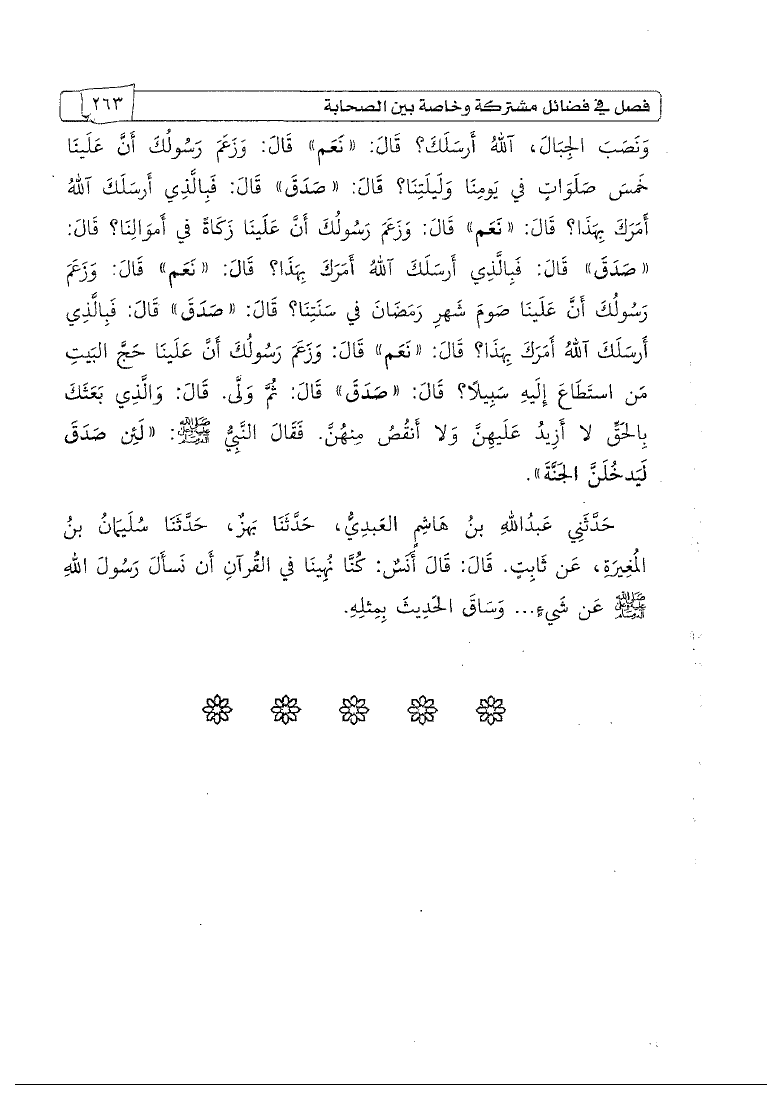 فصل في فضائل مشتركة وخاصة بين الصحابة
٢٦٣
وَنَصَبَ الجِبَالَ، آللهُ أَرسَلَكَ؟ قَالَ: «نَعَم» قَالَ: وَزَعَمَ رَسُولُكَ أَنَّ عَلَينَا
خَمسَ صَلَوَاتٍ فِي يَومِنَا وَلَيلَتِنَا؟ قَالَ: «صَدَقَ» قَالَ: فَبِالَّذِي أَرسَلَكَ آللهُ
أَمَرَكَ بِهَذَا؟ قَالَ: «نَعَم» قَالَ: وَزَعَمَ رَسُولُكَ أَنَّ عَلَينَا زَكَاةً فِي أَموَالِنَا؟ قَالَ:
«صَدَقَ» قَالَ: فَبِالَّذِي أَرسَلَكَ آللهُ أَمَرَكَ بِهَذَا؟ قَالَ: «نَعَم» قَالَ: وَزَعَمَ
رَسُولُكَ أَنَّ عَلَينَا صَومَ شَهرِ رَمَضَانَ فِي سَنَتِنَا؟ قَالَ: «صَدَقَ» قَالَ: فَبِالَّذِي
أَرسَلَكَ آللهُ أَمَرَكَ بِهَذَا؟ قَالَ: «نَعَم» قَالَ: وَزَعَمَ رَسُولُكَ أَنَّ عَلَينَا حَجَّ البَيتِ
مَن استَطَاعَ إِلَيهِ سَبِيلًا؟ قَالَ: «صَدَقَ» قَالَ: ثُمَّ وَلَّى. قَالَ: وَالَّذِي بَعَثَكَ
بِالحَقِّ لا أَزِيدُ عَلَيهِنَّ وَلا أَنقُصُ مِنهُنَّ. فَقَالَ النَّبِيُّ ﷺ: «لَئِن صَدَقَ
لَيَدخُلَنَّ الجَنَّةَ».
حَدَّثَنِي عَبدُاللهِ بنُ هَاشِمٍ العَبدِيُّ، حَدَّثَنَا بَهزٌ، حَدَّثَنَا سُلَيمَانُ بنُ
المُغِيرَةِ، عَن ثَابِتٍ. قَالَ: قَالَ أَنَسٌ: كُنَّا نُهِينَا فِي القُرآنِ أَن نَسأَلَ رَسُولَ اللهِ
ﷺ عَن شَيءٍ... وَسَاقَ الحَدِيثَ بِمِثلِهِ.